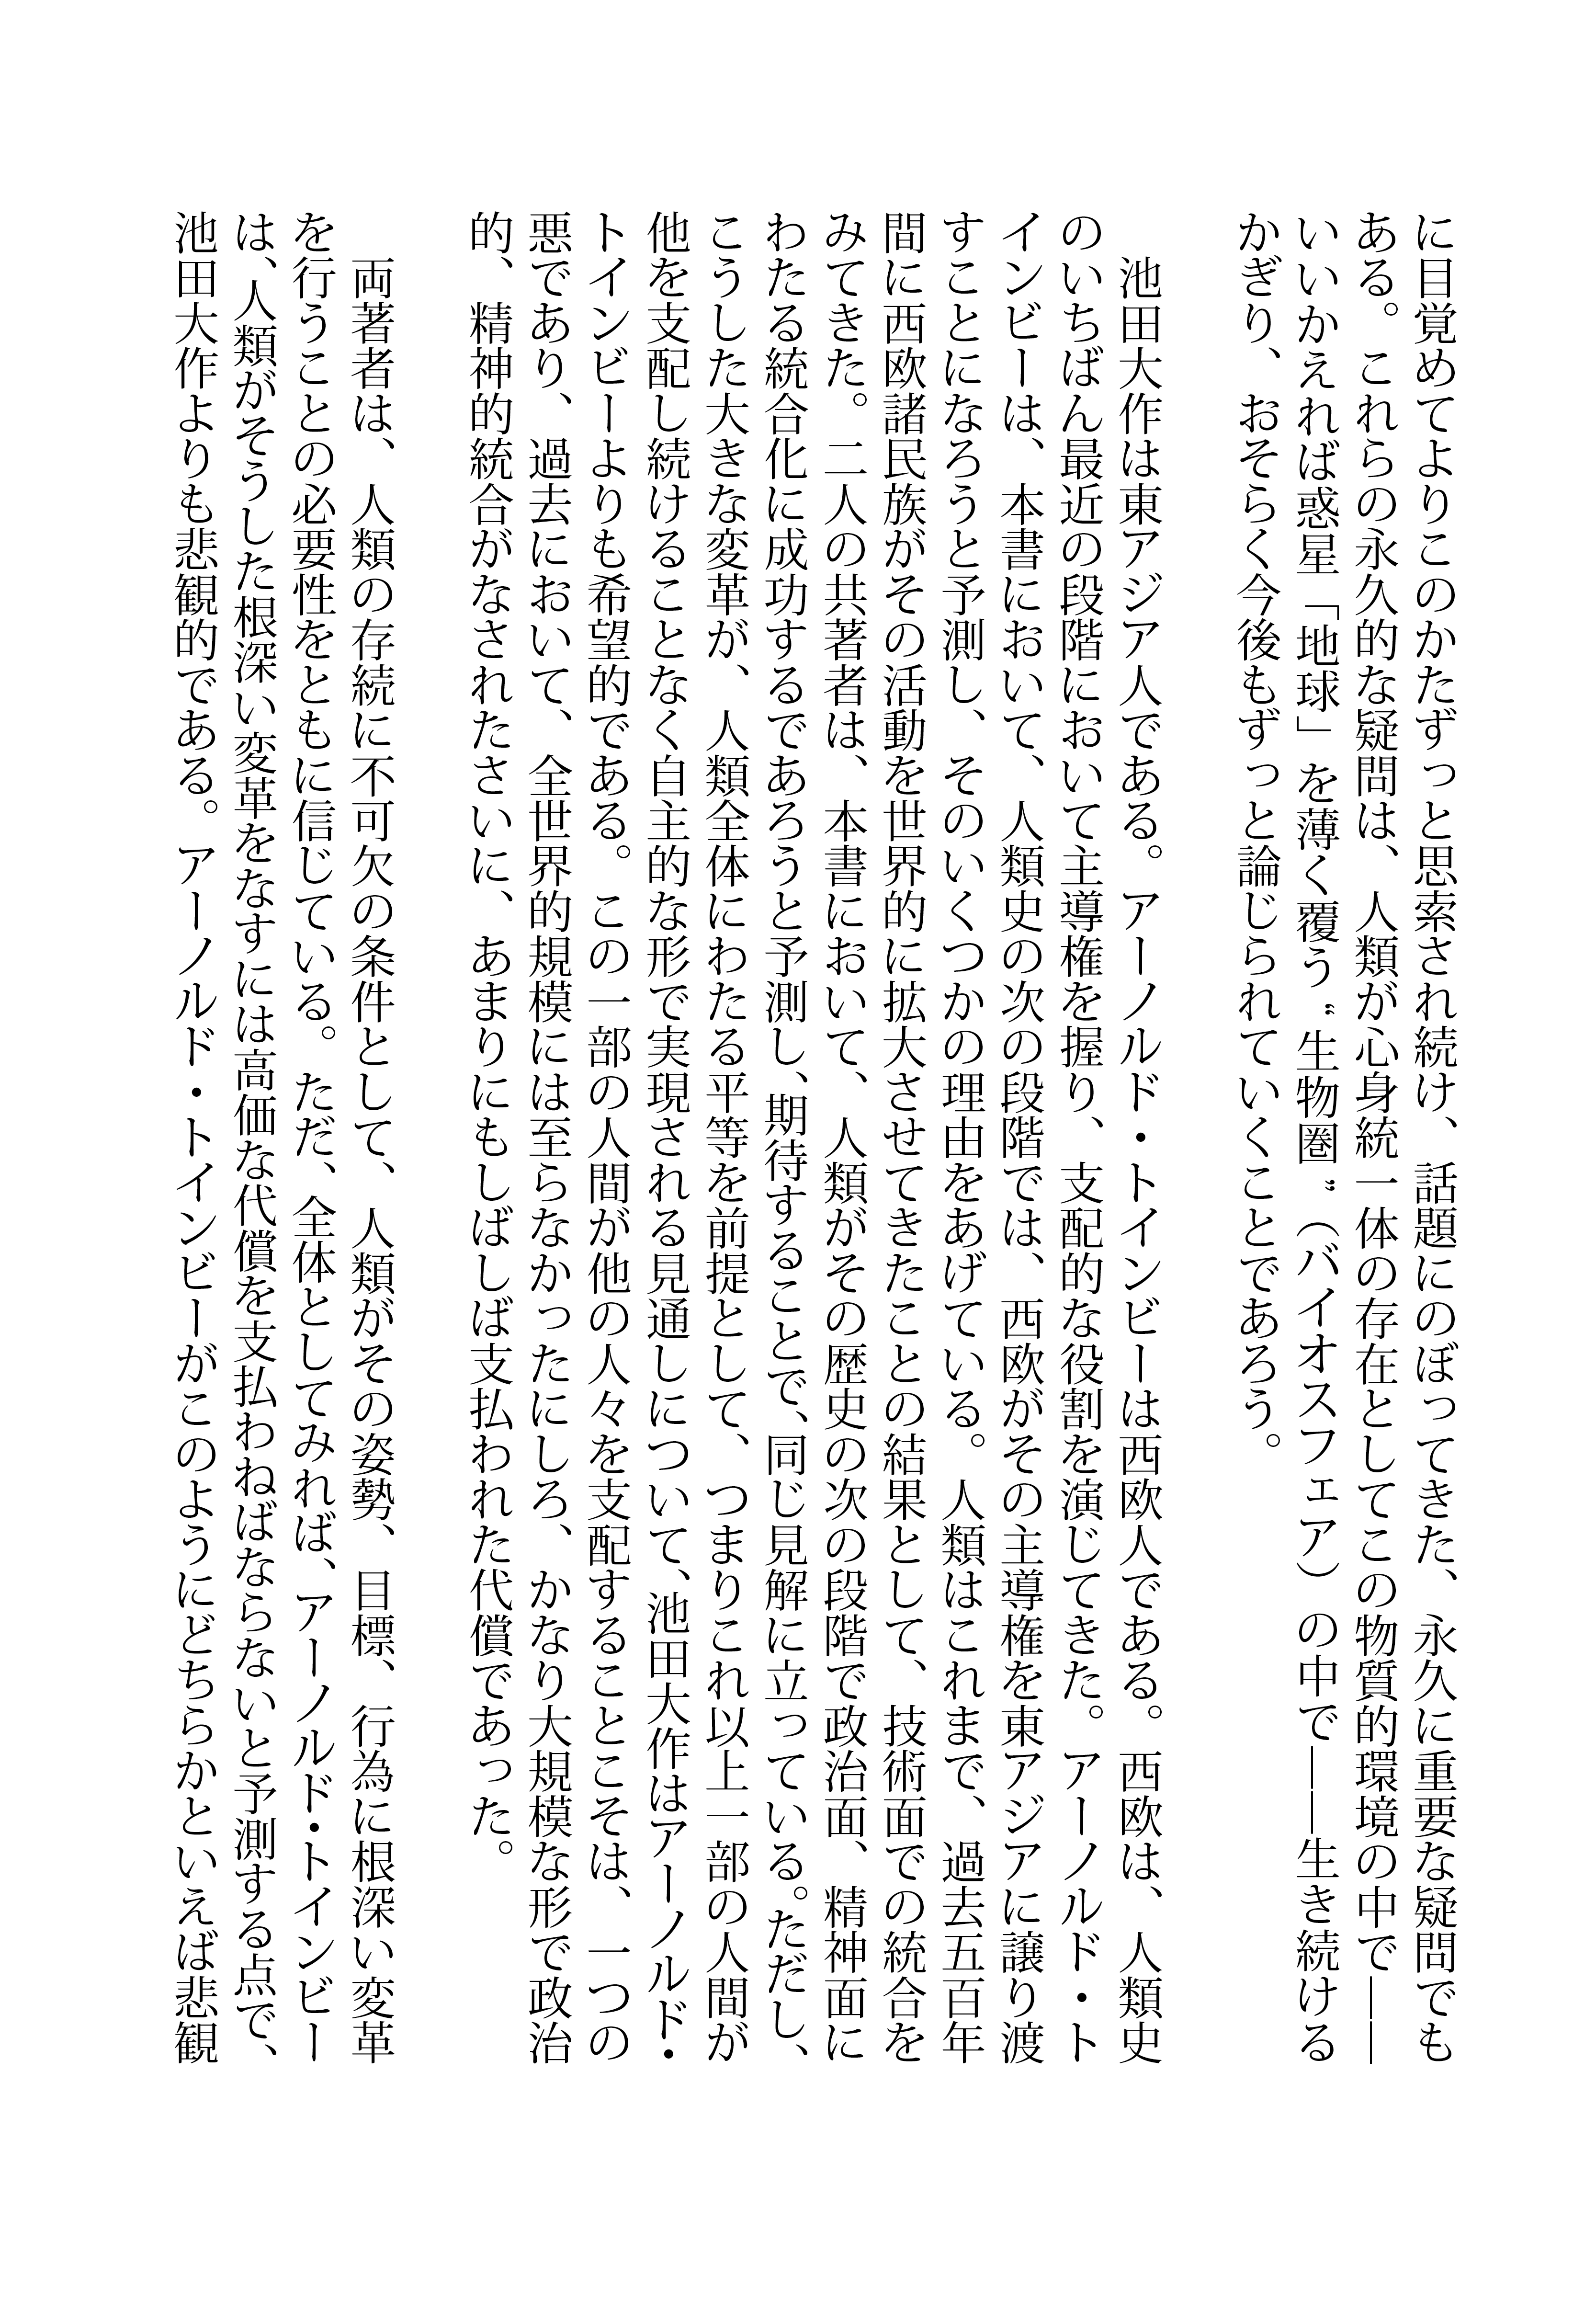 に目覚めてよりこのかたずっと思索され続け、話題にのぼってきた、永久に重要な疑問でも
ある。これらの永久的な疑問は、人類が心身統一体の存在としてこの物質的環境の中で――
いいかえれば惑星「地球」を薄く覆う〝生物圏〟（バイオスフェア）の中で――生き続ける
かぎり、おそらく今後もずっと論じられていくことであろう。
池田大作は東アジア人である。アーノルド・トインビーは西欧人である。西欧は、人類史
のいちばん最近の段階において主導権を握り、支配的な役割を演じてきた。アーノルド・ト
インビーは、本書において、人類史の次の段階では、西欧がその主導権を東アジアに譲り渡
すことになろうと予測し、そのいくつかの理由をあげている。人類はこれまで、過去五百年
間に西欧諸民族がその活動を世界的に拡大させてきたことの結果として、技術面での統合を
みてきた。二人の共著者は、本書において、人類がその歴史の次の段階で政治面、精神面に
わたる統合化に成功するであろうと予測し、期待することで、同じ見解に立っている。ただし、
こうした大きな変革が、人類全体にわたる平等を前提として、つまりこれ以上一部の人間が
他を支配し続けることなく自主的な形で実現される見通しについて、池田大作はアーノルド・
トインビーよりも希望的である。この一部の人間が他の人々を支配することこそは、一つの
悪であり、過去において、全世界的規模には至らなかったにしろ、かなり大規模な形で政治
的、精神的統合がなされたさいに、あまりにもしばしば支払われた代償であった。
両著者は、人類の存続に不可欠の条件として、人類がその姿勢、目標、行為に根深い変革
を行うことの必要性をともに信じている。ただ、全体としてみれば、アーノルド・トインビー
は、人類がそうした根深い変革をなすには高価な代償を支払わねばならないと予測する点で、
池田大作よりも悲観的である。アーノルド・トインビーがこのようにどちらかといえば悲観